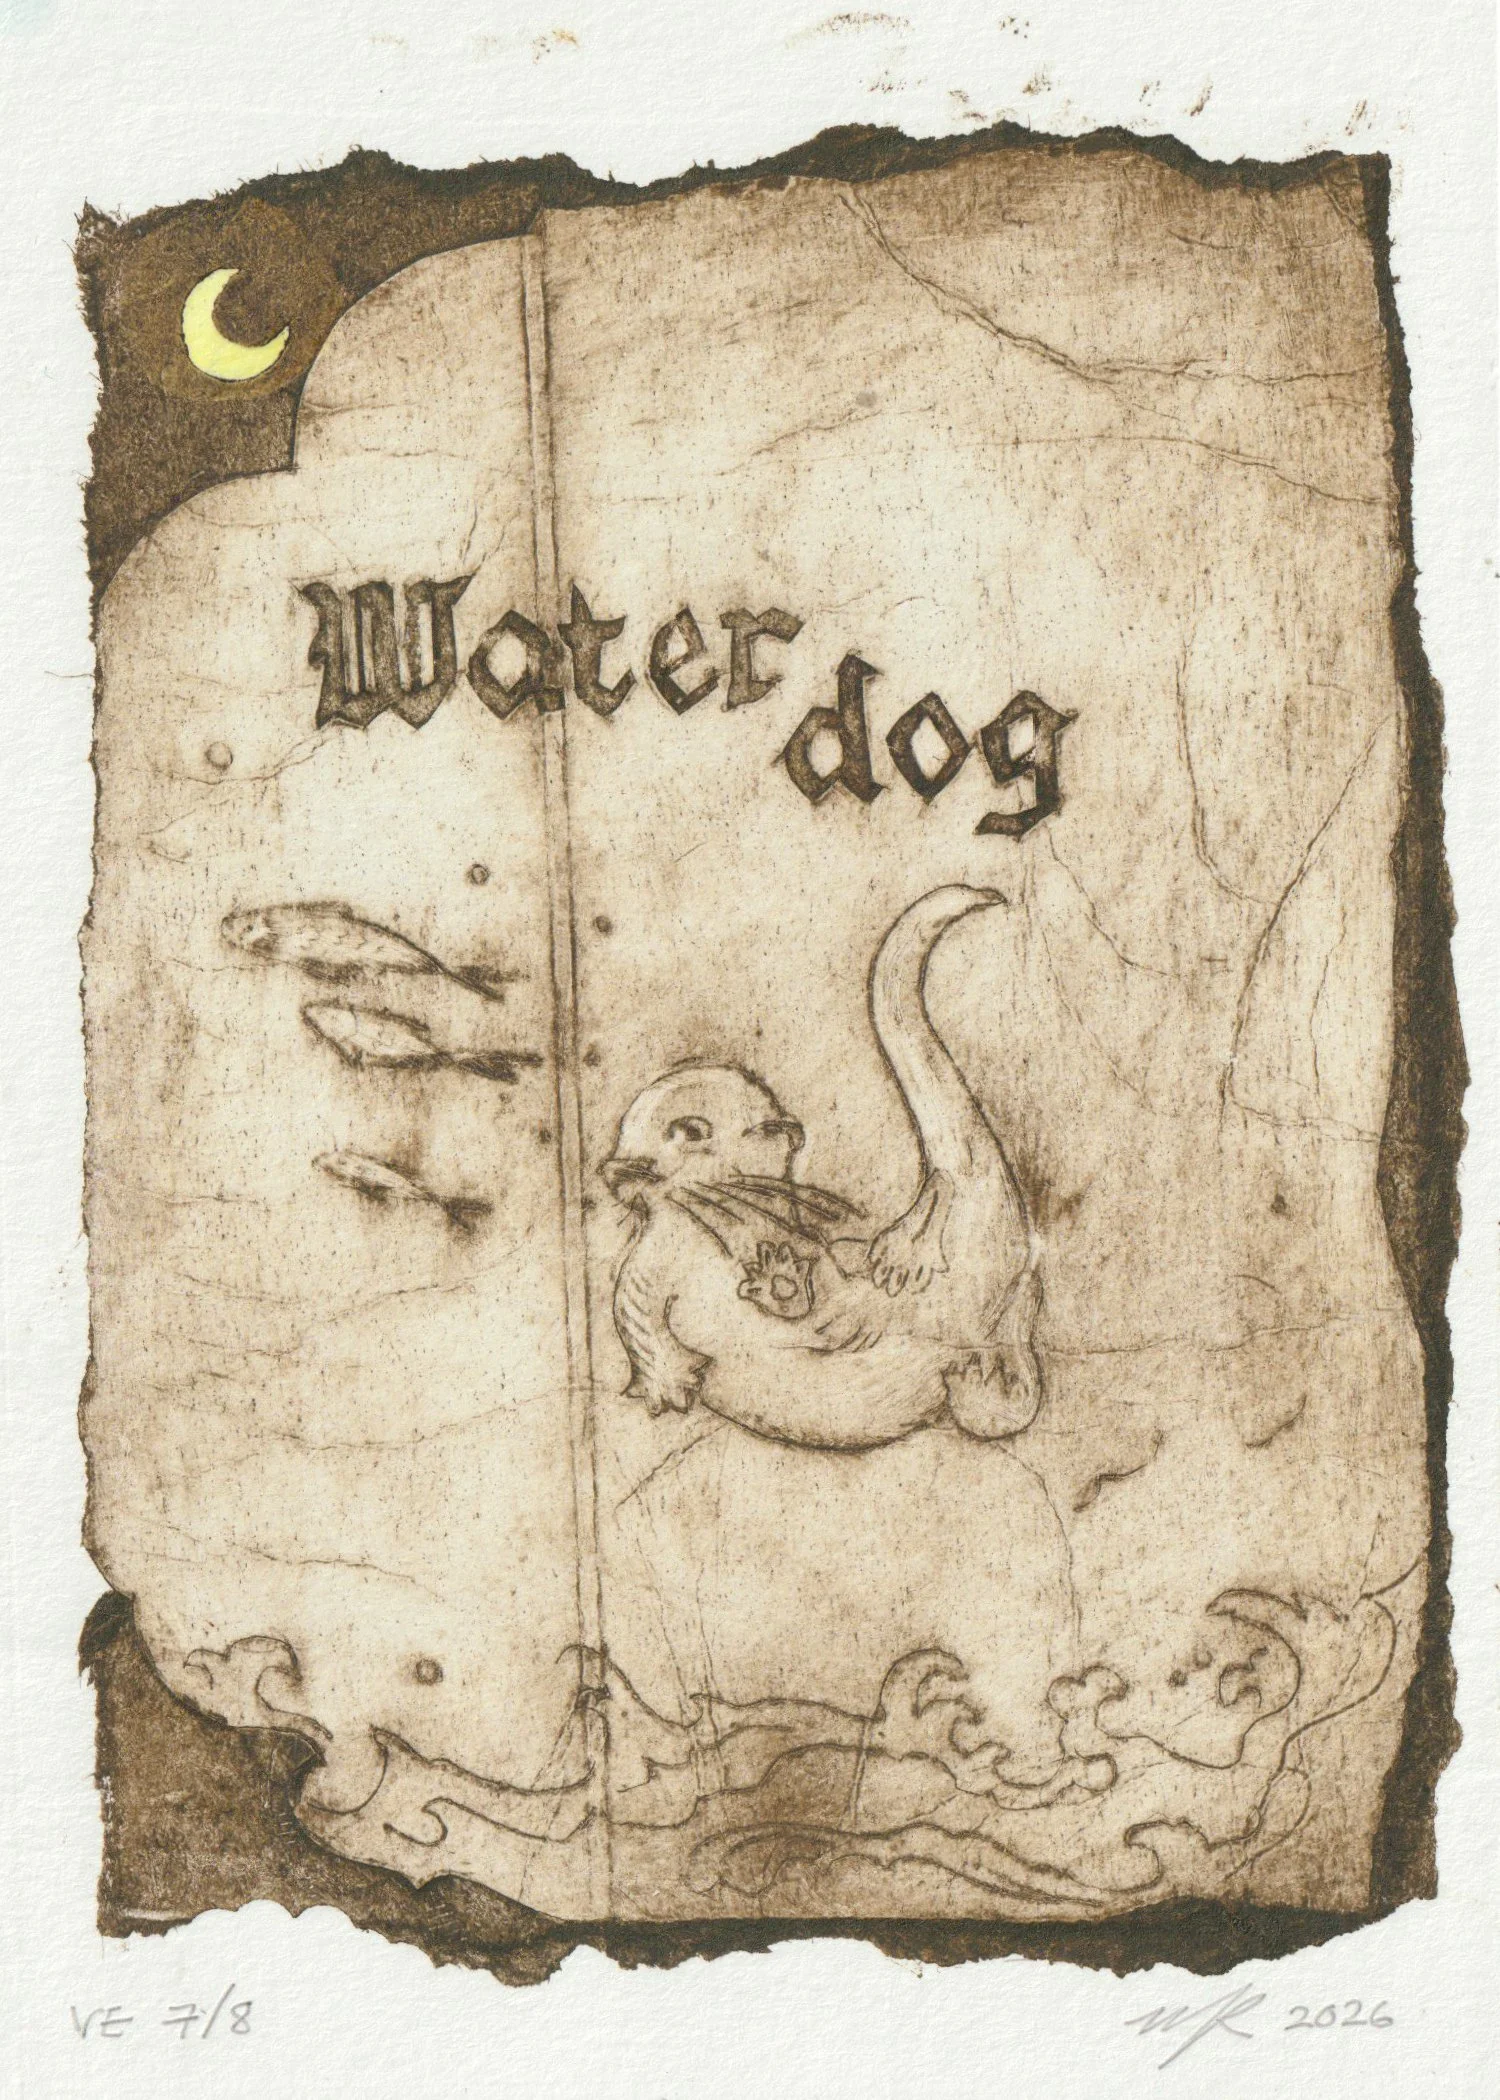 Water
dog
VE 7/8
2026